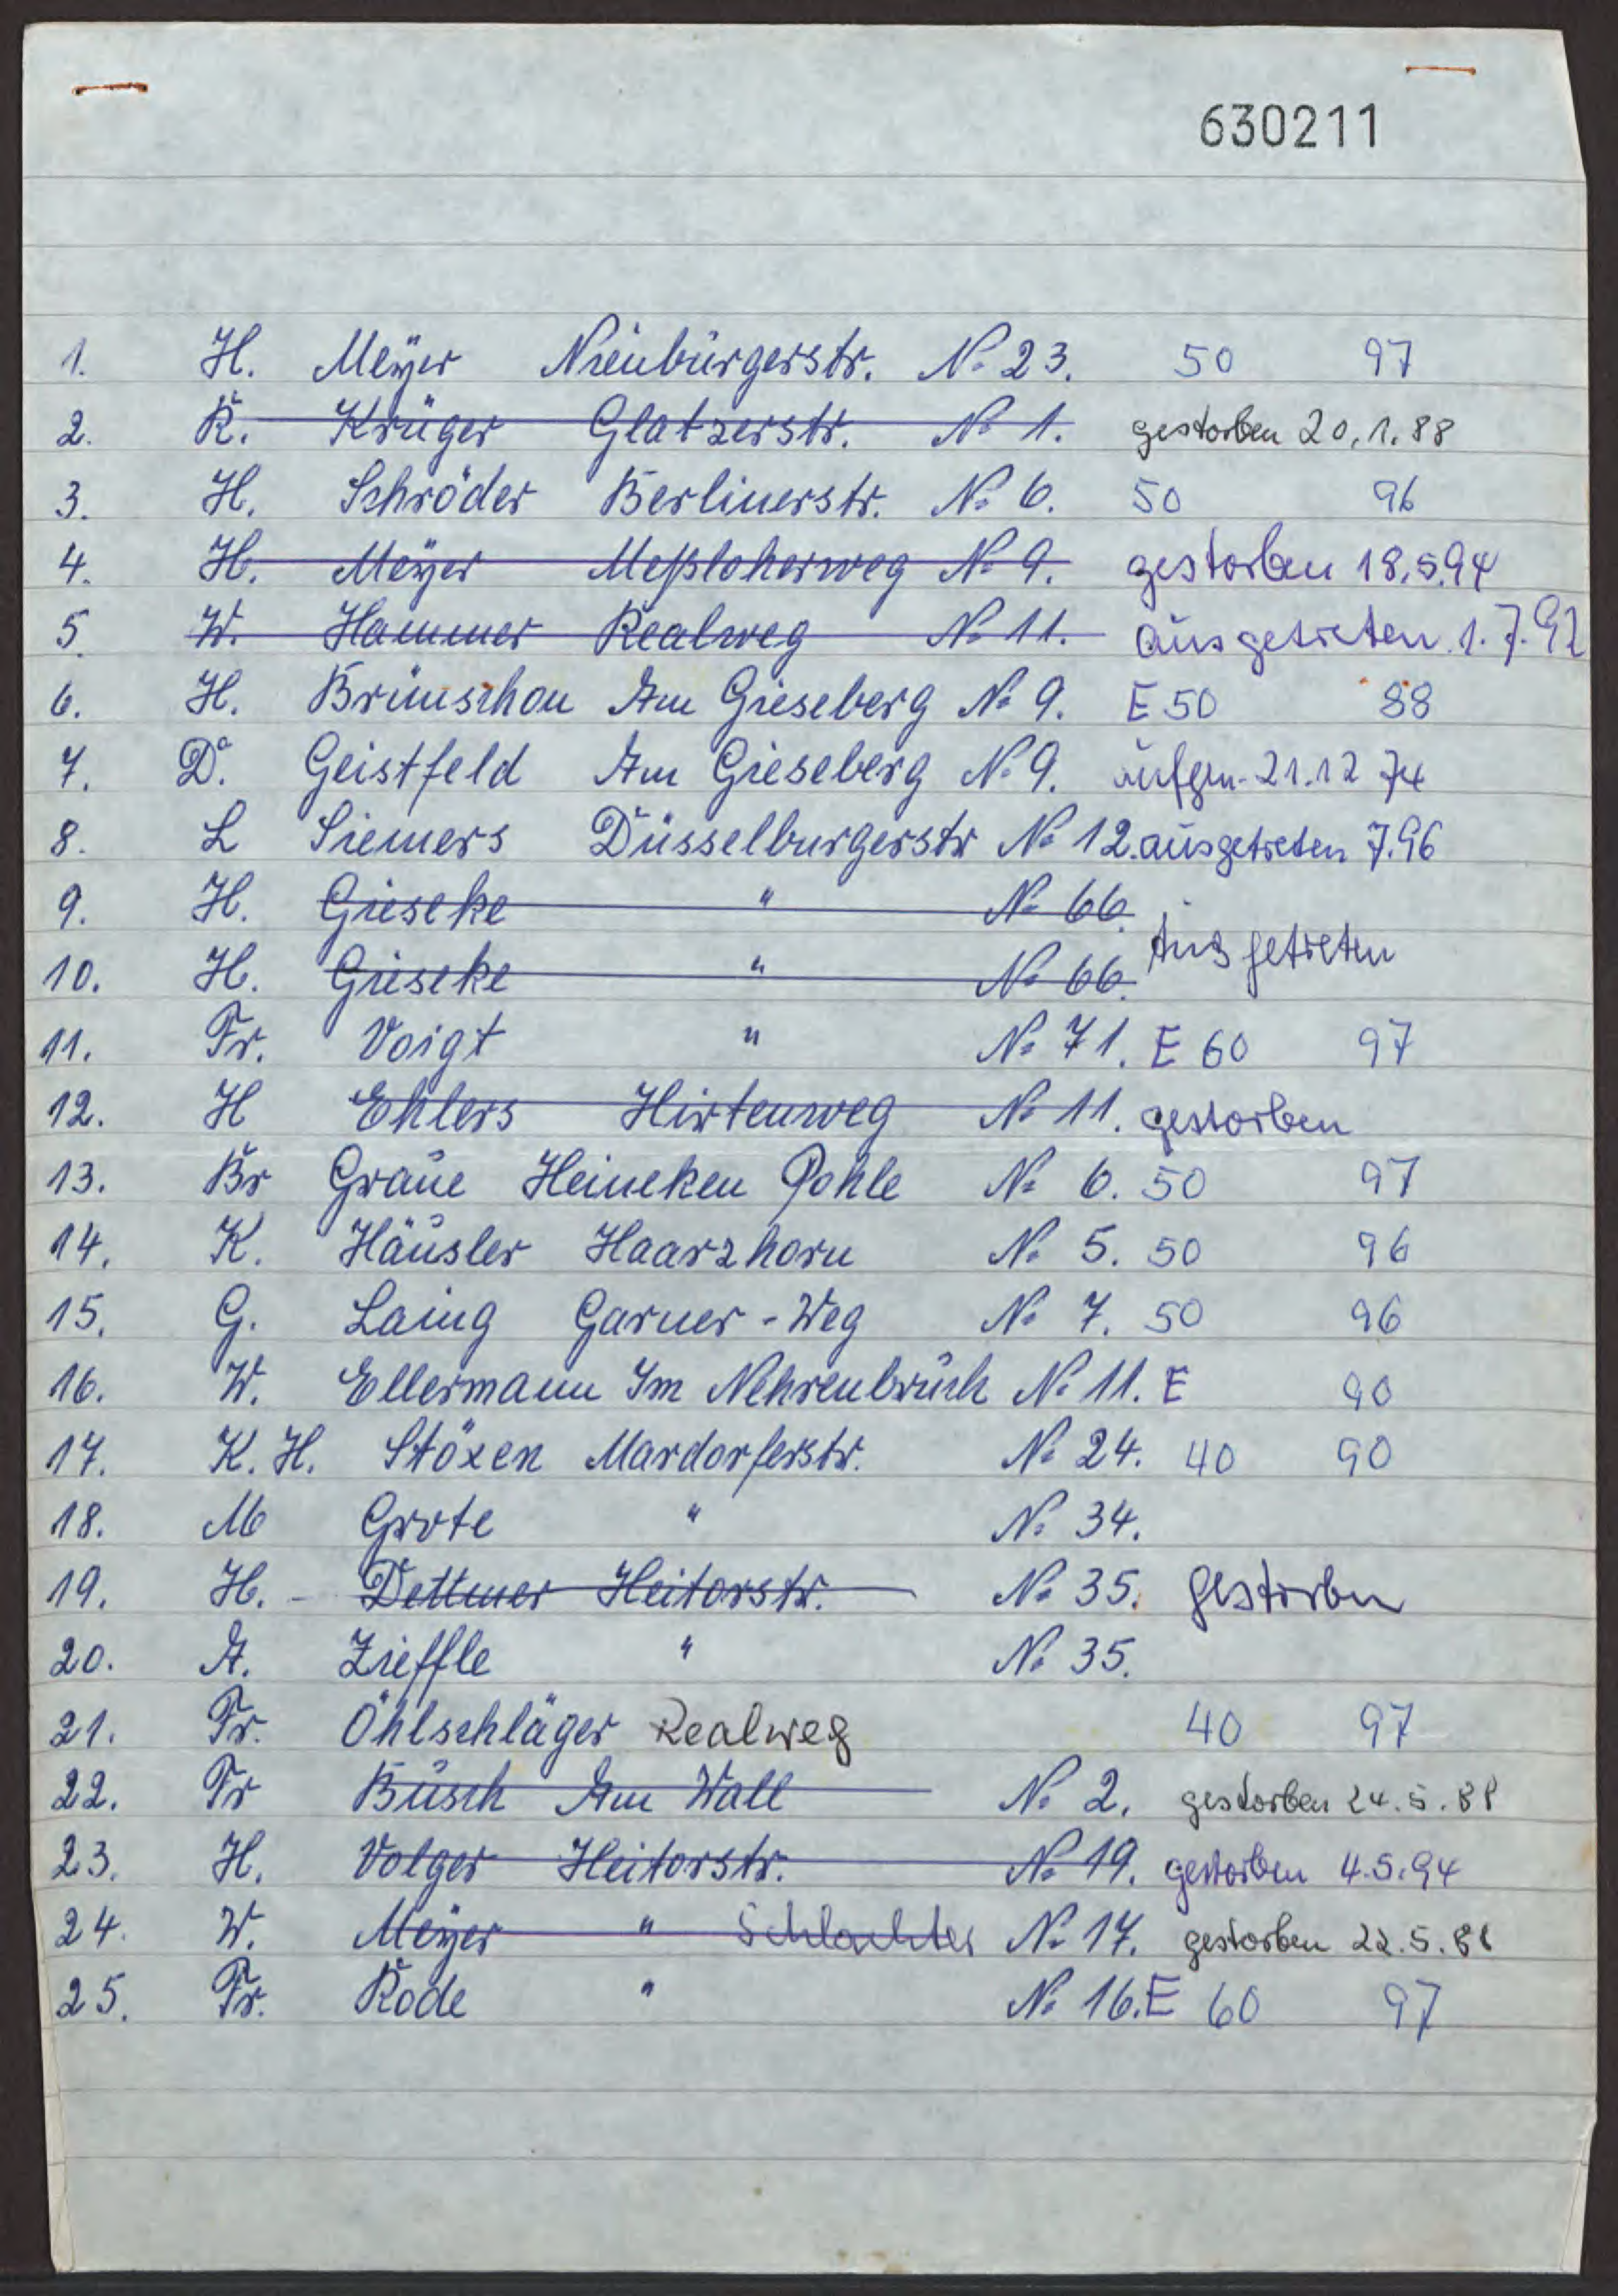 630211
1. H. Meyer Nienburgerstr. No 23. 50 97
2. K. Krüger Glatzerstr. No 1. gestorben 20.1.88
3. H. Schröder Berlinerstr. No 6. 50 96
4. H. Meyer Meßloherweg No 9. gestorben 18.5.94
5. W. Hammer Realweg No 11. ausgetreten 1.7.92
6. H. Brünschon Am Gieseberg No 9. E 50 88
7. D. Geistfeld Am Gieseberg No 9. aufgen. 21.12 74
8. L Siemers Düsselburgerstr No 12. ausgetreten 7.96
9. H. Gieseke " No 66.
10. H. Gieseke " No 66. Ausgetreten
11. Fr. Voigt " No 71. E 60 97
12. H Ehlers Hirtenweg No 11. gestorben
13. Br Graue Heineken Pohle No 6. 50 97
14. K. Häusler Haarzhorn No 5. 50 96
15. G. Laing Garner-Weg No 7. 50 96
16. W. Ellermann Im Nehrenbruch No 11. E 90
17. K. H. Stöxen Mardorferstr. No 24. 40 90
18. M Grote " No 34.
19. H. - Dettmer Heitorstr. No 35. gestorben
20. A. Zieffle " No 35.
21. Fr. Öhlschläger Realweg 40 97
22. Fr Busch Am Wall No 2. gestorben 24.5.88
23. H. Volger Heitorstr. No 19. gestorben 4.5.94
24. W. Meyer " Schlachter No 17. gestorben 22.5.88
25. Fr. Rode " No 16. E 60 97